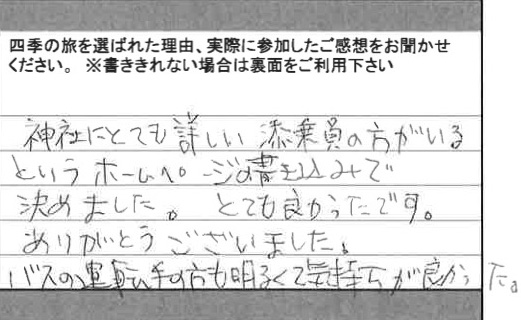 四季の旅を選ばれた理由、実際に参加したご感想をお聞かせ
ください。 ※書ききれない場合は裏面をご利用下さい
神社にとても詳しい添乗員の方がいる
というホームページの書き込みで
決めました。 とても良かったです。
ありがとうございました。
バスの運転手の方も明るくて気持ちが良かった。